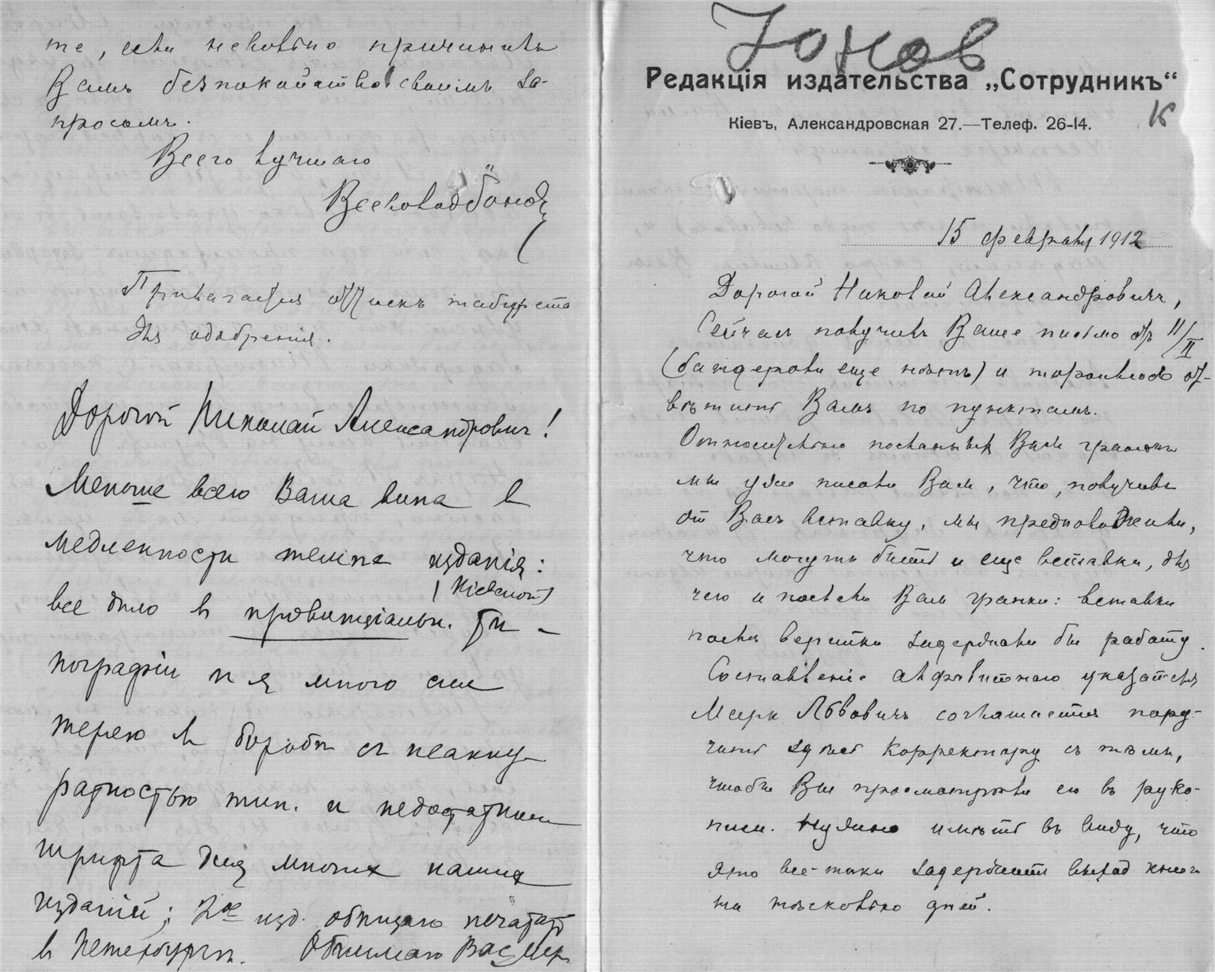 те, если невольно причинилъ
Вамъ безпокойство своимъ за-
просомъ.
Всего лучшаго
Прилагается оттискъ табурета
для одобренія.
Дорогой Николай Александровичъ!
Меньше всего Ваша вина в
медленности темпа изданія:
(Кіевской)
все дило в провинціальн. ти-
пографіи и я много сил
теряю в борьбѣ съ неакку-
ратностью тип. и недостатком
шрифта для многих наших
изданій; 2ое изд. обѣщаю печатать
в Петербургѣ. Обнимаю Вас
Іоновъ
Редакція издательства „Сотрудникъ“
К
Кіевъ, Александровская 27.—Телеф. 26-14.
15 февраля 1912
Дорогой Николай Александровичъ,
Сейчасъ получилъ Ваше письмо отъ 11/II
(бандероли еще нѣтъ) и тороплюсь от-
вѣтить Вамъ по пунктамъ.
Относительно посланныхъ Вамъ гранокъ
мы уже писали Вамъ, что, получивъ
от Васъ вставку, мы предположили,
что могутъ быть и еще вставки, для
чего и послали Вамъ гранки: вставки
послѣ верстки задержали бы работу.
Составленіе алфавитнаго указателя
Маркъ Львовичъ соглашается пору-
чить здѣсь корректору съ тѣмъ,
чтобы Вы просмотрѣли его въ руко-
писи. Нужно имѣть въ виду, что
это все-таки задержитъ выход книги
на нѣсколько дней.